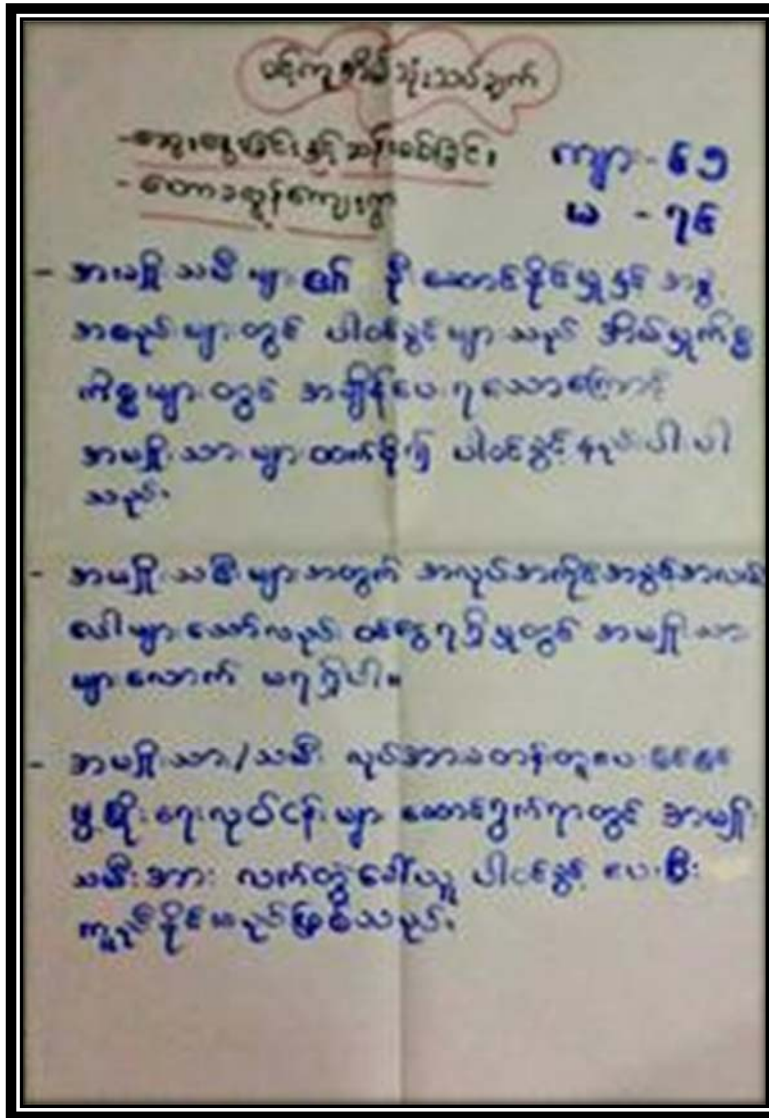 သုံးသပ်ချက်
- ဆွေးနွေးခြင်းနှင့်ဆန်းစစ်ခြင်း။
ကျား - ၆၅
- တောခလွန်ကျေးရွာ
မ - ၇၆
- အမျိုးသမီးများ၏ ဦးဆောင်နိုင်မှုနှင့် အဖွဲ့
အစည်းများတွင် ပါဝင်ခွင့်များသည် အိမ်မှုကိစ္စ
ကိစ္စများတွင် အချိန်ပေးရသောကြောင့်
အမျိုးသားများထက်စို၍ ပါဝင်ခွင့်နည်းပါးပါ
သည်။
- အမျိုးသမီးများအတွက် အလုပ်အကိုင်အခွင့်အလမ်း
ပေါများသော်လည်း ဝင်ငွေရရှိမှုတွင် အမျိုးသား
များလောက် မရရှိပါ။
- အမျိုးသား/သမီး လုပ်အားခတန်းတူပေး
ဖွံ့ဖြိုးရေးလုပ်ငန်းများ ဆောင်ရွက်ရာတွင် အမျိုး
သမီးအား လက်တွဲခေါ်ယူ ပါဝင်ခွင့် ပေးပြီး
ကူညီနိုင်မည်ဖြစ်သည်။